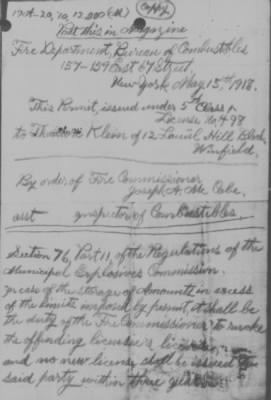 Copy
Post this in Magazine
Fire Department, Bureau of Combustibles
157-159 East 67 Street,
New York, May 15th 1918.
This Permit, issued under 5th Class
License No 498
to Klein of 12 Laurel Hill
Winfield.
By order of Fire Commissioner
Joseph A. Mc Cabe.
asst inspector of Combustibles.
Section 76, Part 11, of the Regulations of the
Municipal Explosives Commission.
In case of the Storage of Amounts in excess
of the limits imposed by permit, it shall be
the duty of the Fire Commissioner to revoke
the offending licensee's license,
and no new license shall be issued
said party within three years.